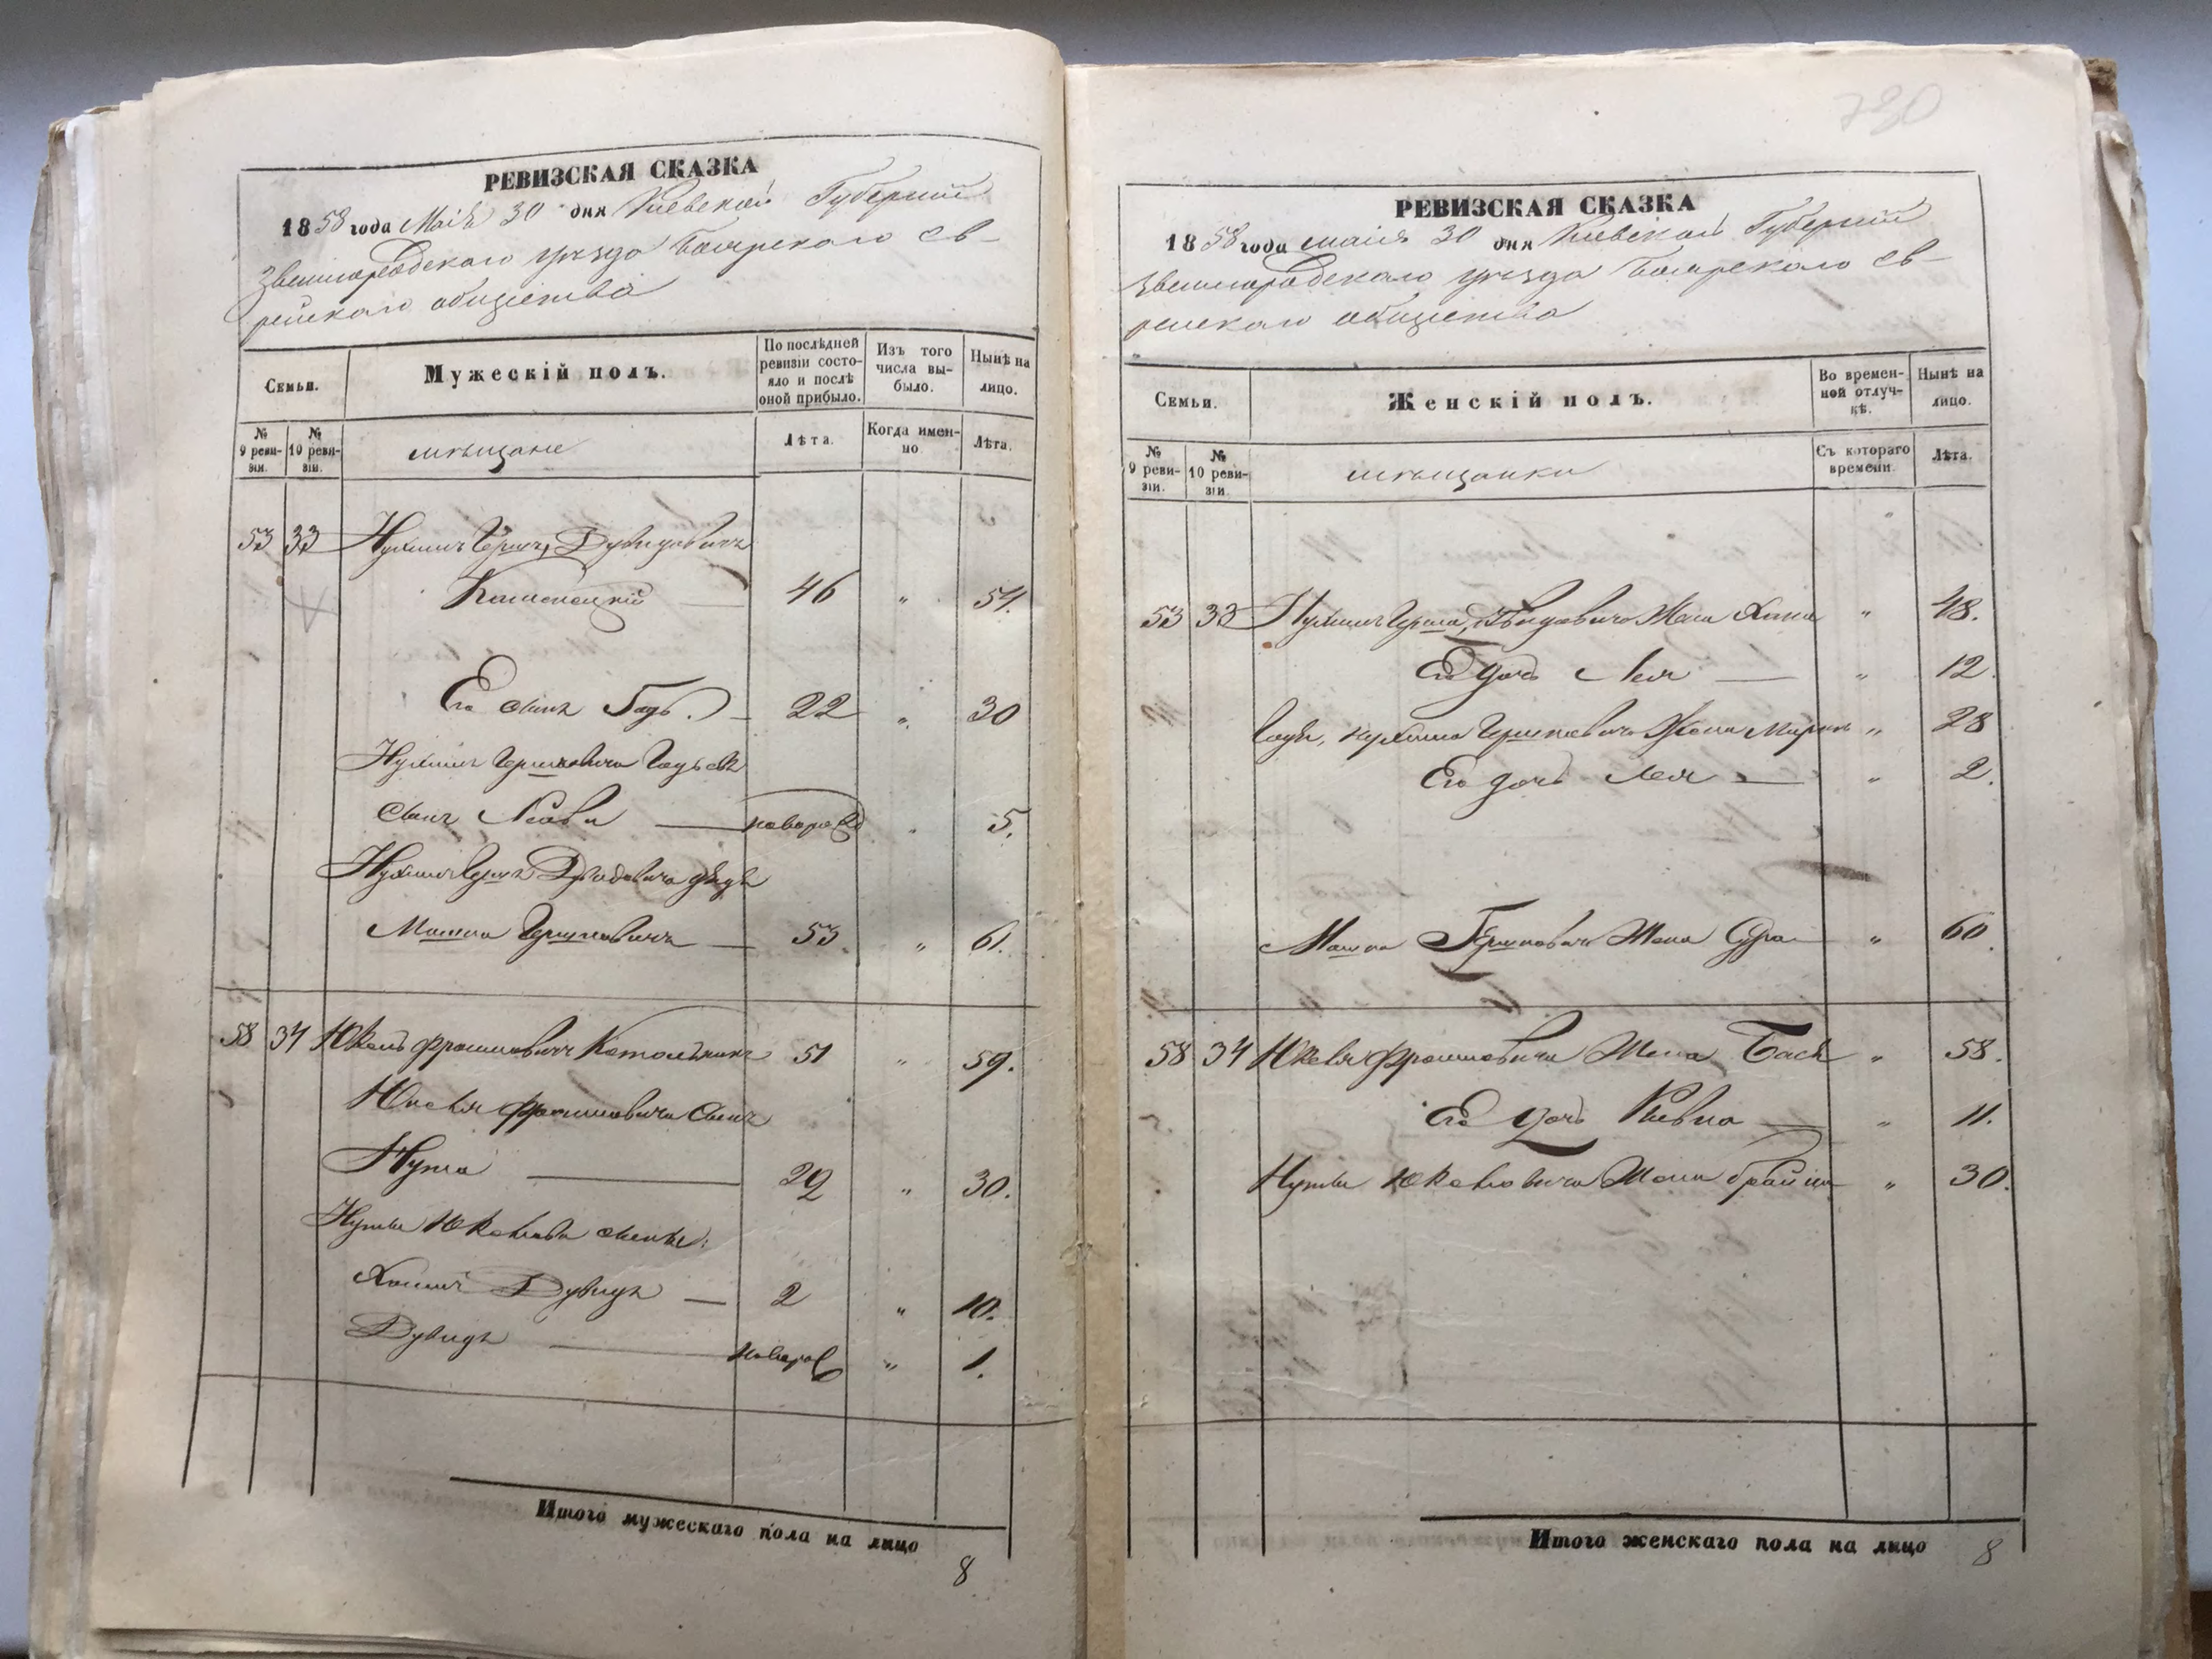 РЕВИЗСКАЯ СКАЗКА
1858 года Маія 30 дня Кіевской Губерніи
Звенигородскаго уѣзда Боярского Ев-
рейскаго общества
Семьи.
Мужескій полъ.
По послѣдней ревизіи состояло и послѣ оной прибыло.
Изъ того числа выбыло.
Нынѣ на лицо.
№ 9 ревизіи.
№ 10 ревизіи.
мѣщане
Лѣта.
Когда именно
Лѣта.
53 33 Нухимъ Гершъ Дувидовичъ
Каменецкій 46 " 54.
Его сынъ Гадь 22 " 30
Нухимъ Гершковича Гадья
сынъ новорож " 5.
Нухимъ Герша Дувидовича дядя
Мошко Гершковичъ 53 " 61.
58 34 Юкель Фроимовичъ Котольникъ 51 " 59.
Юкеля Фроимовича сынъ
Нута 22 " 30.
Нуты Юкелева сыны:
Хаимъ Дувидъ 2 " 10.
Дувидъ новорож " 1.
Итого мужескаго пола на лицо 8
730
РЕВИЗСКАЯ СКАЗКА
1858 года маія 30 дня Кіевской Губерніи
Звенигородскаго уѣзда Боярского Ев-
рейскаго общества
Семьи.
Женскій полъ.
Во временной отлучкѣ.
Нынѣ на лицо.
№ 9 ревизіи.
№ 10 ревизіи.
мѣщанки
Съ котораго времени.
Лѣта.
53 33 Нухимъ Герша Дувидовича Жена Хана " 48.
Его дочь Лея " 12.
Гадья Нухима Гершковича Жена Мирля " 28
Его дочь Лея " 2.
Мошка Гершковича Жена Сура " 60.
58 34 Юкеля Фроимовича Жена Бася " 58.
Его дочь Ривка " 11.
Нуты Юкелевича Жена Брайна " 30.
Итого женскаго пола на лицо 8